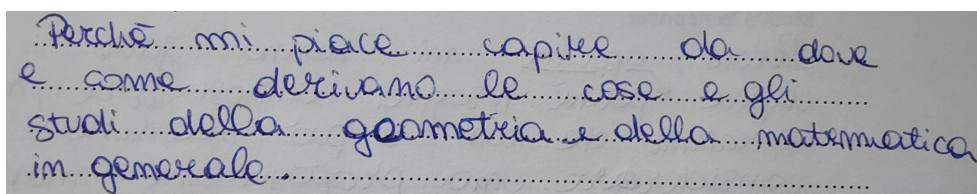 Perchè mi piace capire da dove
e come derivano le cose e gli
studi della geometria e della matematica
in generale.